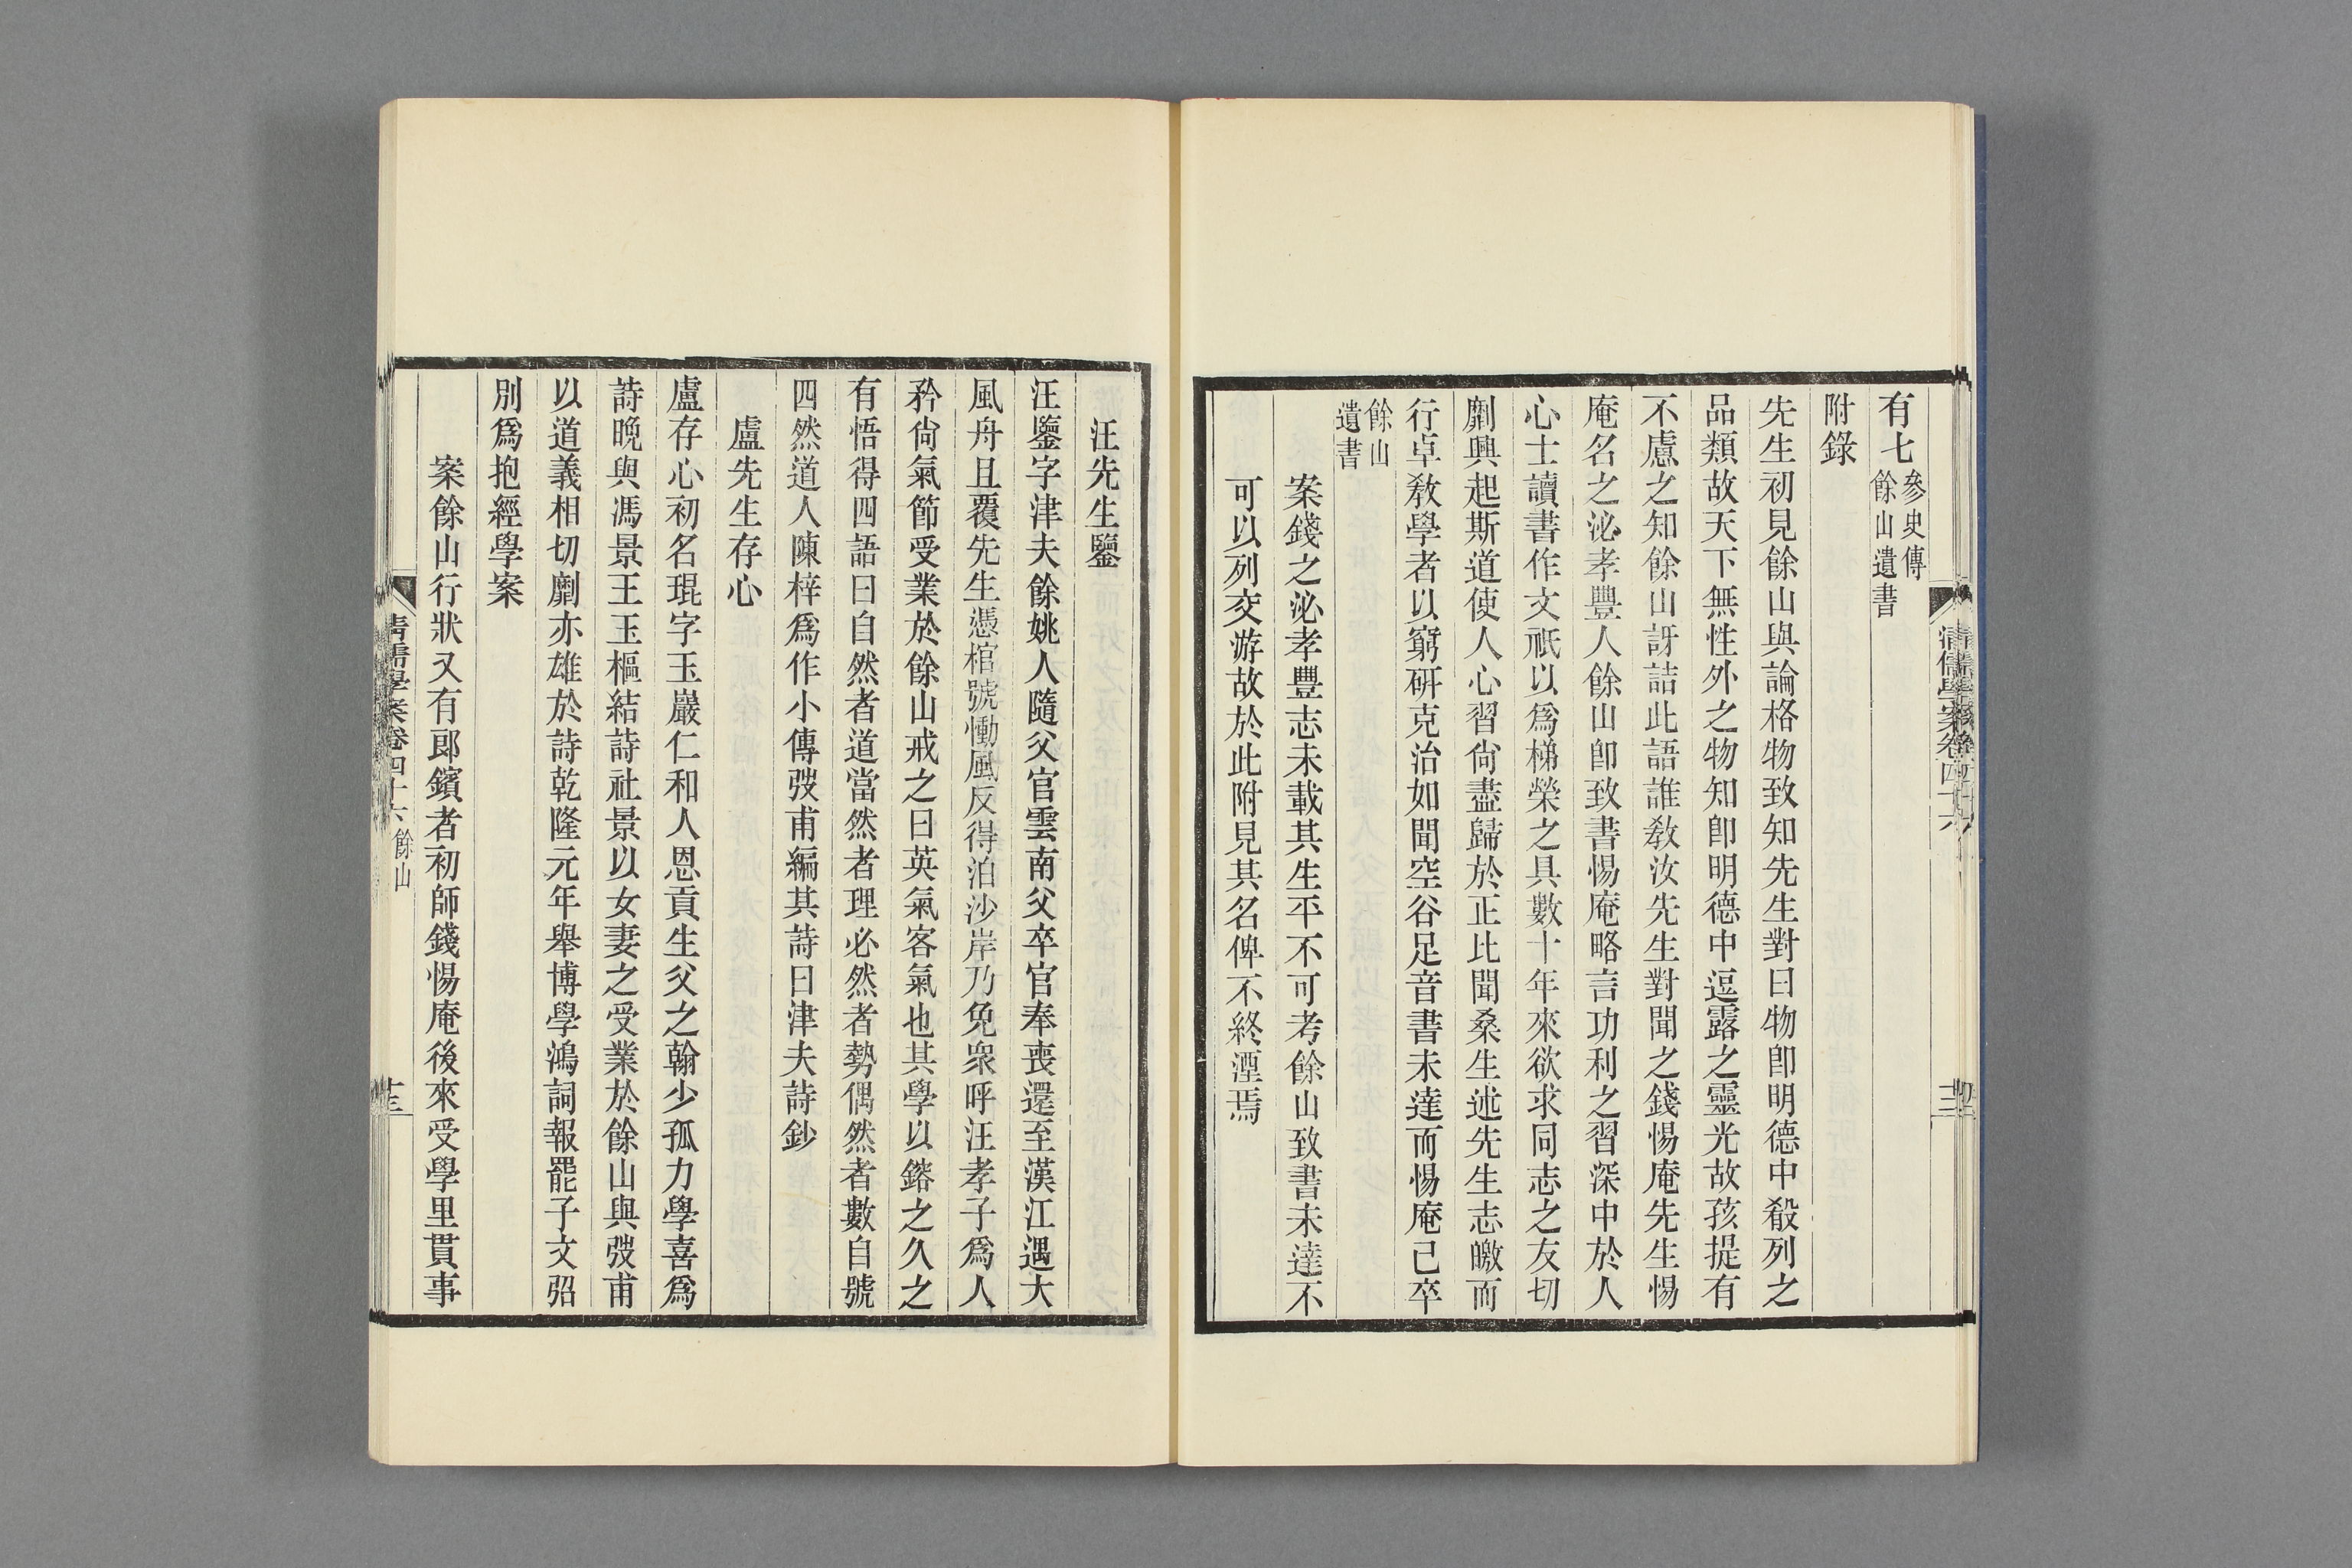 有七參史傳餘山遺書
附錄
先生初見餘山與論格物致知先生對曰物卽明德中殽列之
品類故天下無性外之物知卽明德中逗露之靈光故孩提有
不慮之知餘山訝詰此語誰敎汝先生對聞之錢惕庵先生惕
庵名之泌孝豐人餘山卽致書惕庵略言功利之習深中於人
心士讀書作文祇以爲梯榮之具數十年來欲求同志之友切
劘興起斯道使人心習尙盡歸於正比聞桑生述先生志皦而
行卓敎學者以窮硏克治如聞空谷足音書未達而惕庵已卒
餘山遺書
案錢之泌孝豐志未載其生平不可考餘山致書未達不
可以列交游故於此附見其名俾不終湮焉
清儒學案卷四十六
汪先生鑒
汪鑒字津夫餘姚人隨父官雲南父卒官奉喪還至漢江遇大
風舟且覆先生憑棺號慟風反得泊沙岸乃免衆呼汪孝子爲人
矜尙氣節受業於餘山戒之曰英氣客氣也其學以鎔之久之
有悟得四語曰自然者道當然者理必然者勢偶然者數自號
四然道人陳梓爲作小傳弢甫編其詩曰津夫詩鈔
盧先生存心
盧存心初名琨字玉巖仁和人恩貢生父之翰少孤力學喜爲
詩晚與馮景王玉樞結詩社景以女妻之受業於餘山與弢甫
以道義相切劘亦雄於詩乾隆元年舉博學鴻詞報罷子文弨
別爲抱經學案
案餘山行狀又有郞鑌者初師錢惕庵後來受學里貫事
清儒學案卷四十六 餘山